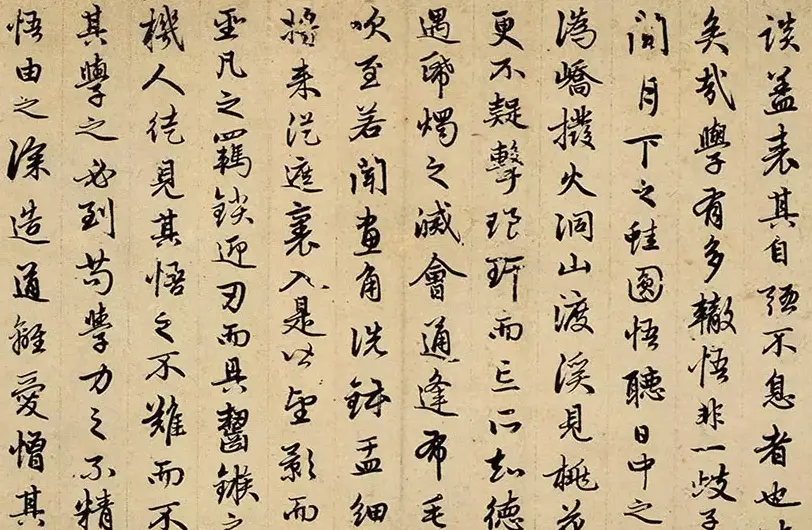 談盖表其自强不息者也
矣哉學有多轍悟非一歧
間月下之蛙圓悟聽日中之
溈嶠撥火洞山渡溪見桃花
更不疑擊琅玕而亡所知德
遇帋燭之滅會通逢布毛
吹至若聞畫角洗鉢盂細
將来從遮裏入是以望影而
聖凡之羈鎖迎刃而具齧鏃之
機人徒見其悟之不難而不
其學之必到苟學力之不精
悟由之深造道離愛憎其